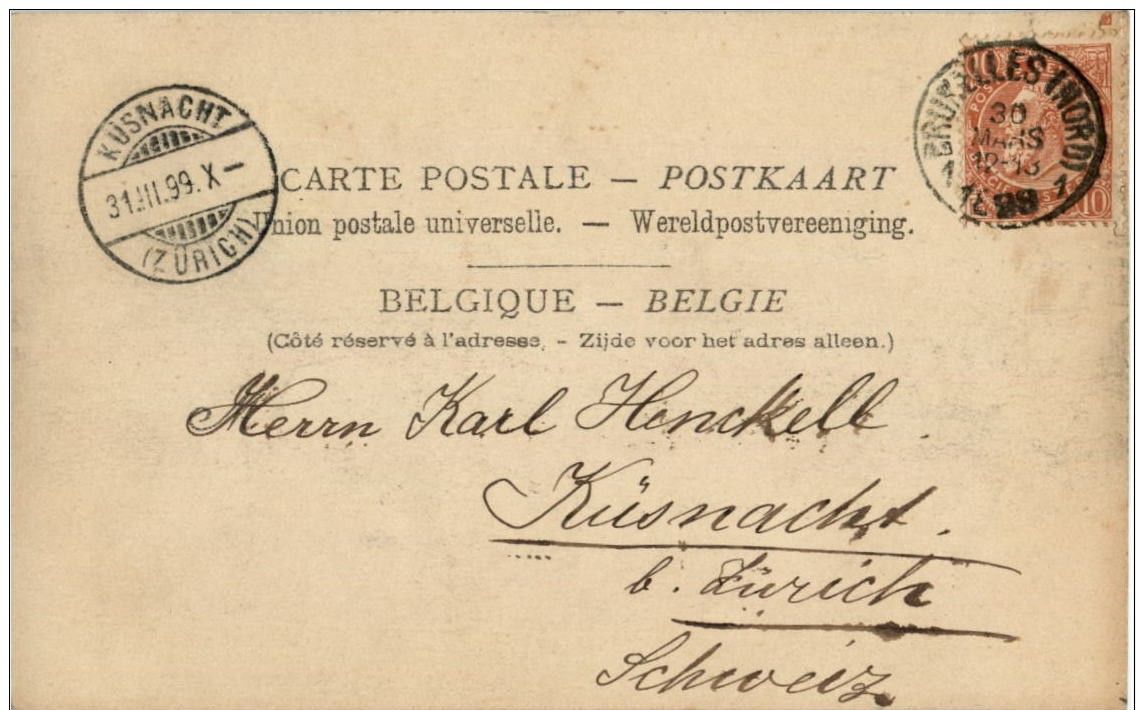 KÜSNACHT
31.III.99.X—
(ZÜRICH)
BRUXELLES (NORD)
30
MARS
12-13
1 1899 1
10
10
CARTE POSTALE — POSTKAART
Union postale universelle. — Wereldpostvereeniging.
BELGIQUE — BELGIE
(Côté réservé à l'adresse. - Zijde voor het adres alleen.)
Herrn Karl Henckell
Küsnacht.
b. Zürich
Schweiz